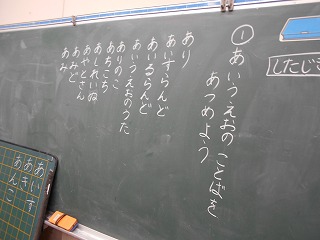 ① あいうえおのことばを
あつめよう
あり
あいすらんど
あいるらんど
あいうえおのうた
ありのこ
あちこち
あしれいぬ
あやとさん
あみど
あみ
したじき
あいす
あき
あんこ